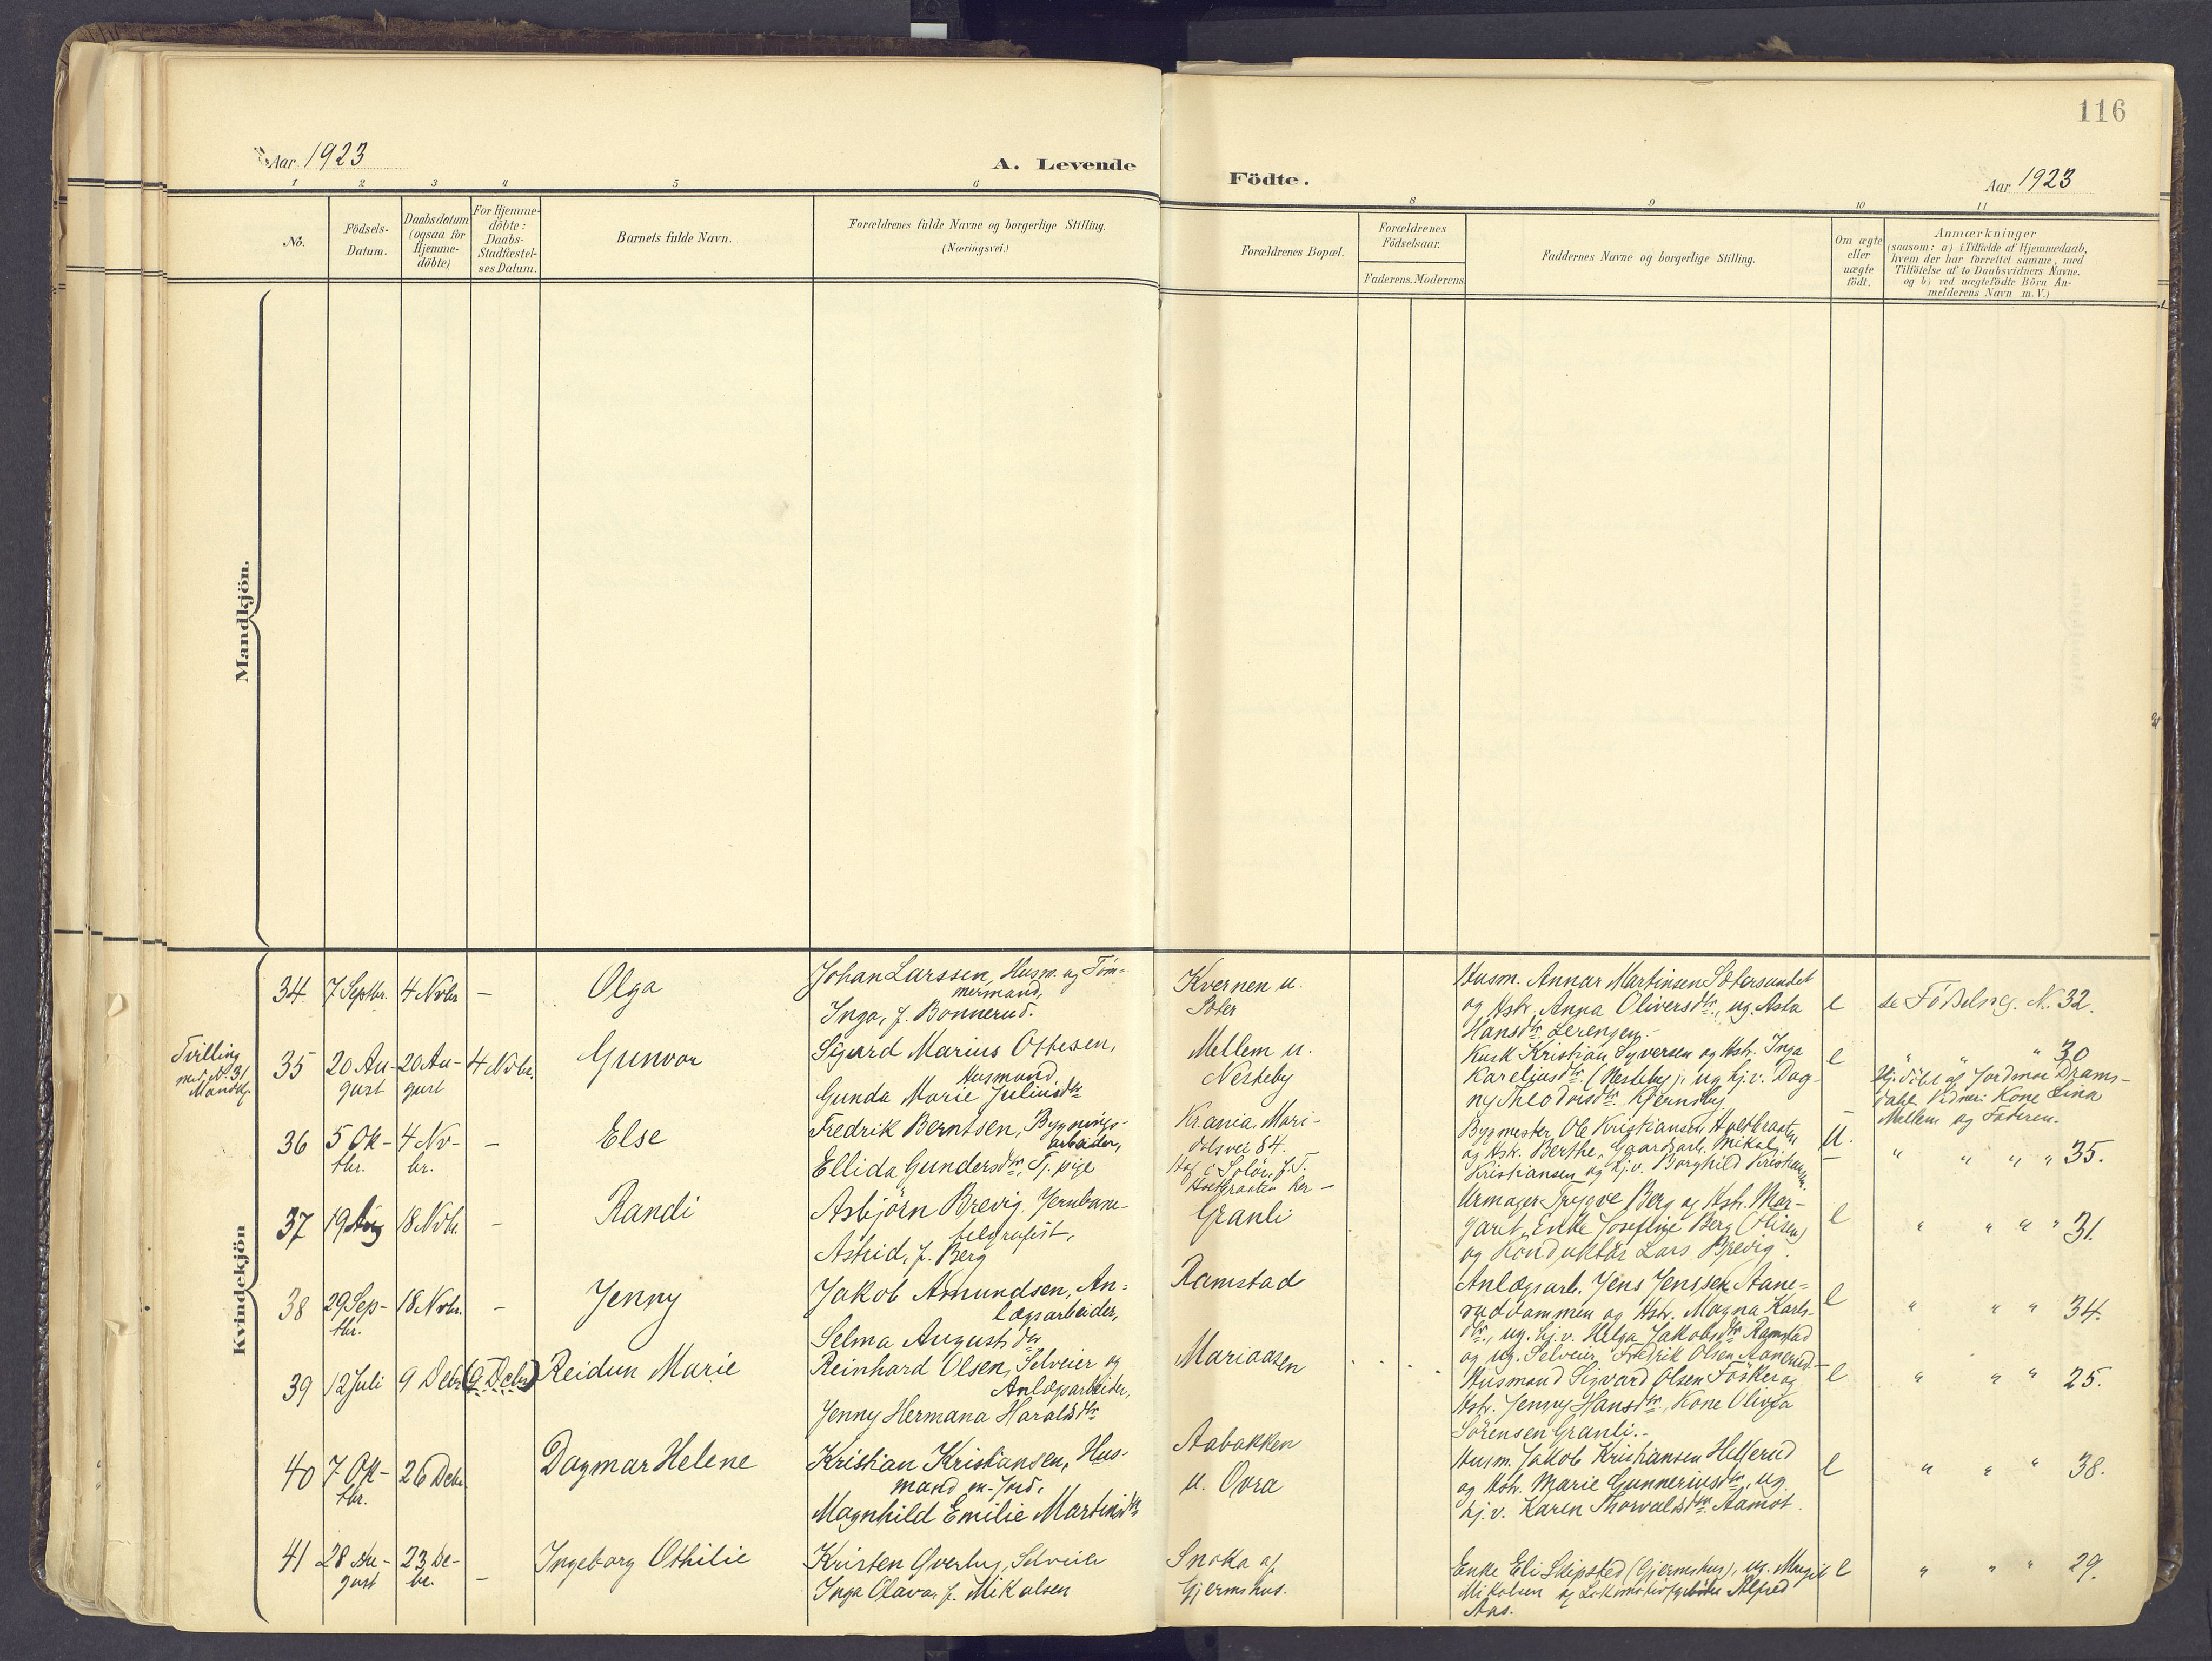 116
Aar 1923
A. Levende
Födte.
Aar 1923
1 2 3 4 5 6 8 9 10 11
No.
Födsels-
Datum.
Daabsdatum
(ogsaa for
Hjemme-
döbte)
For Hjemme-
döbte:
Daabs-
Stadfæstel-
ses Datum.
Barnets fulde Navn.
Forældrenes fulde Navne og borgerlige Stilling.
(Næringsvei.)
Forældrenes Bopæl.
Forældrenes
Födselsaar.
Faderens. Moderens
Faddernes Navne og borgerlige Stilling.
Om ægte
eller
uægte
födt.
Anmærkninger
(saasom: a) i Tilfælde af Hjemmedaab,
hvem der har forrettet samme, med
Tilföielse af to Daabsvidners Navne.
og b) ved uægtefödte Börn An-
melderens Navn m. V.)
Mandkjön.
Kvindekjön
34. 7 Septbr. 4 Novbr - Olga
Johan Larssen, Husm. og Töm-
mermand,
Inga, f. Bonnerud.
Kvernen u.
Sæter
Husm. Annar Martinsen Sætersundet
og Hstr. Anna Oliversdtr., ug. Asta
Hansdtr. Lerengen.
e
se Födselreg. N. 32.
Tvilling
med N. 31
Mandkj.
35 20 Au-
gust
20 Au-
gust
4 Novbr.
Gunvor
Sigurd Marius Ottesen,
Husmand,
Gunda Marie Juliusdtr
Mellem u.
Nesteby
Kusk Kristian Syversen og Hstr. Inga
Kareliusdtr. (Nesteby), ug. hj.v. Dag-
ny Theodorsdtr. Kjernsby
e
" " " 30
Hj. döbt af Jordmor Drams-
dahl Vidner: Kone Lina
Mellem og Faderen.
36 5 Ok-
tbr.
4 No-
br.
- Else
Fredrik Berntsen, Bygnings-
arbeider,
Ellida Gundersdtr, Tj. pige
Kr.ania, Mari-
dolsvei 84.
Hof i Solör, f. T.
Holtbraaten her -
Bygmester Ole Kristiansen, Holtbraaten
og Hstr. Berthe, Gaardsarb. Mikal
Kristiansen og hj.v. Borghild Kristiansen.
U.
" " " " 35.
37 19 Aug 18 Novbr. - Randi
Asbjörn Brevig, Jernbane-
telegrafist,
Astrid, f. Berg
Granli
Urmager Trygve Berg og Hstr. Mar-
garit, Enke Josefine Berg (Olisen)
og Konduktör Lars Brevig.
e
" " " " 31.
38 29 Sep-
tbr.
18 Novbr. - Jenny
Jakob Amundsen, An-
lægsarbeider,
Selma Augustsdtr
Ramstad
Anlægsarb. Jens Jenssen Aane-
ruddammen og Hstr. Magna Karls-
dtr., ug. hj.v. Helga Jakobsdtr Ramstad
og ug. Selveier Fredrik Olsen Aanerud.
e
" " " 34.
39 12 Juli 9 Debr (9 Debr) Reidun Marie
Reinhard Olsen, Selveier og
Anlægsarbeider,
Jenny Hermana Haraldsdtr
Mariaasen
Husmand Sigvard Olsen Fösker og
Hstr. Jenny Hansdtr., Kone Olivia
Sörensen Granli.
e
" " " 25.
40 7 Ok-
tbr.
26 Debr. Dagmar Helene
Kristian Kristiansen, Hus-
mand m. Jord.
Magnhild Emilie Martinsdtr
Aabakken
u. Overa
Husm. Jakob Kristiansen Hellerud
og Hstr. Marie Gunneriusdtr., ug.
hj.v. Karen Thorvaldsdtr. Aamot.
e
" " " 38.
41 28 Au-
gust
23 De-
br.
- Ingeborg Othilie
Kristen Overby, Selveier
Inga Olava, f. Mikalsen
Snoka af
Gjermshus.
Enke Eli Skipsted (Gjermshus), ug. Margit
Mikalsen og Alfred
Aas.
e
" " " 29.